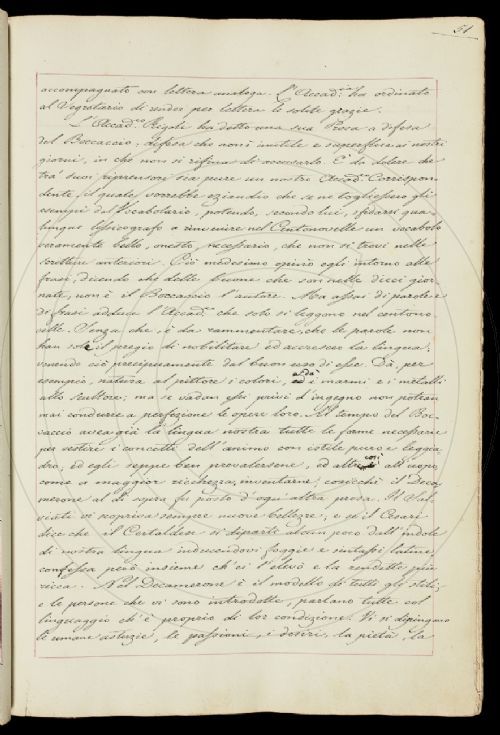 51
accompagnato con lettera analoga. L'Accad.ia ha ordinato
al Segretario di render per lettera le solite grazie.
L'Accad.co Rigoli ha detto una sua Prosa a difesa
del Boccaccio; difesa che non è inutile e superflua ai nostri
giorni, in che non si rifina di accusarlo. È da dolere che
tra' suoi riprensori sia pure un nostro Accad.co Corrispon-
dente il quale vorrebbe eziandio che se ne togliessero gli
esempi dal Vocabolario, potendo, secondo lui, sfidarsi qua-
lunque lessicografo a rinvenire nel Centonovelle un vocabolo
veramente bello, onesto, necessario, che non si trovi nelle
scritture anteriori. Ciò medesimo opinò egli intorno alle
frasi, dicendo che delle buone che son nelle dieci gior-
nate, non è il Boccaccio l'autore. Ma assai di parole e
di frasi adduce l'Accad.co che solo si leggono nel centono-
velle. Senza che, è da rammentare, che le parole non
han sole il pregio di nobilitare ed accrescer la lingua,
venendo ciò precipuamente dal buon uso di esse. Dà, per
esempio, natura al pittore i colori, e dà i marmi e i metalli
allo scultore; ma se vadan essi privi d'ingegno non potran
mai condurre a perfezione le opere loro. Al tempo del Boc-
caccio avea già la lingua nostra tutte le forme necessarie
per vestire i concetti dell'animo con istile puro e leggia-
dro, ed egli seppe ben prevalersene, ed altre così all'uopo
come a maggior ricchezza, inventarne; cosicchè il Deca-
merone al di sopra fu posto d'ogni altra prosa. Il Sal-
viati vi scopriva sempre nuove bellezze, e se il Cesari
dice che il Certaldese si dipartì alcun poco dall'indole
di nostra lingua inducendovi foggie e sintassi latine,
confessa però insieme ch'ei l'elevò e la rendette più
ricca. Nel Decamerone è il modello di tutti gli stili,
e le persone che vi sono introdotte, parlano tutte col
linguaggio ch'è proprio di lor condizione. Vi si dipingono
le umane astuzie, le passioni, i desiri, la pietà, la